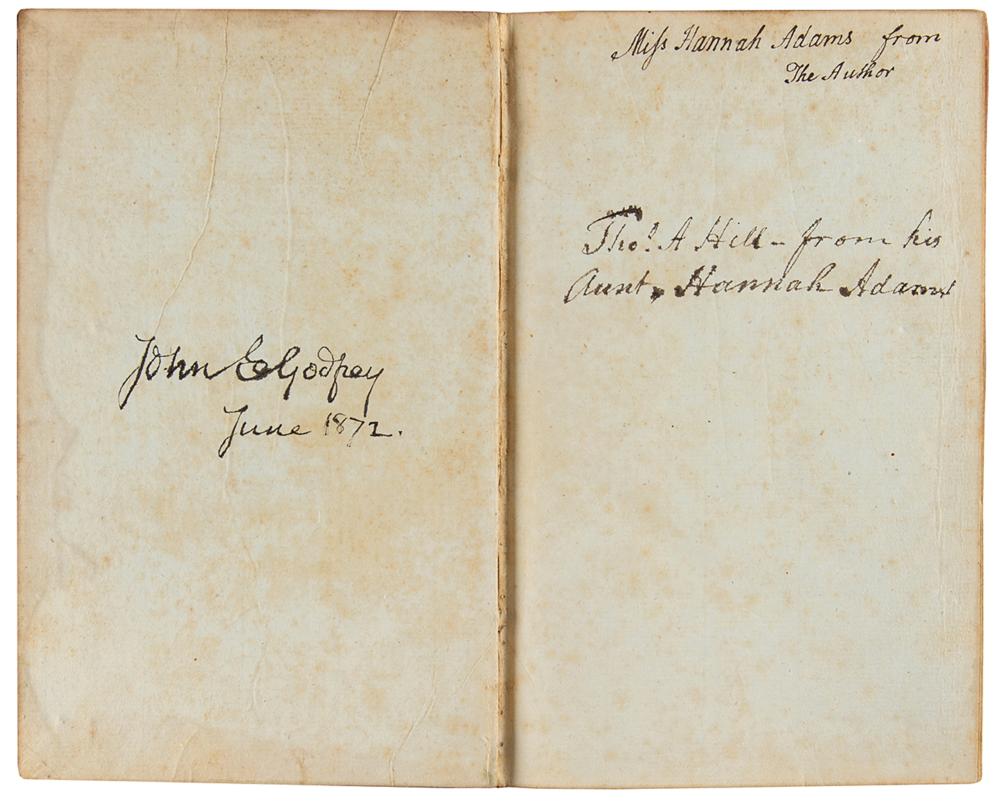 John E Godfrey
June 1872.
Miſs Hannah Adams from
The Author
Thos. A Hill - from his
Aunt, Hannah Adams